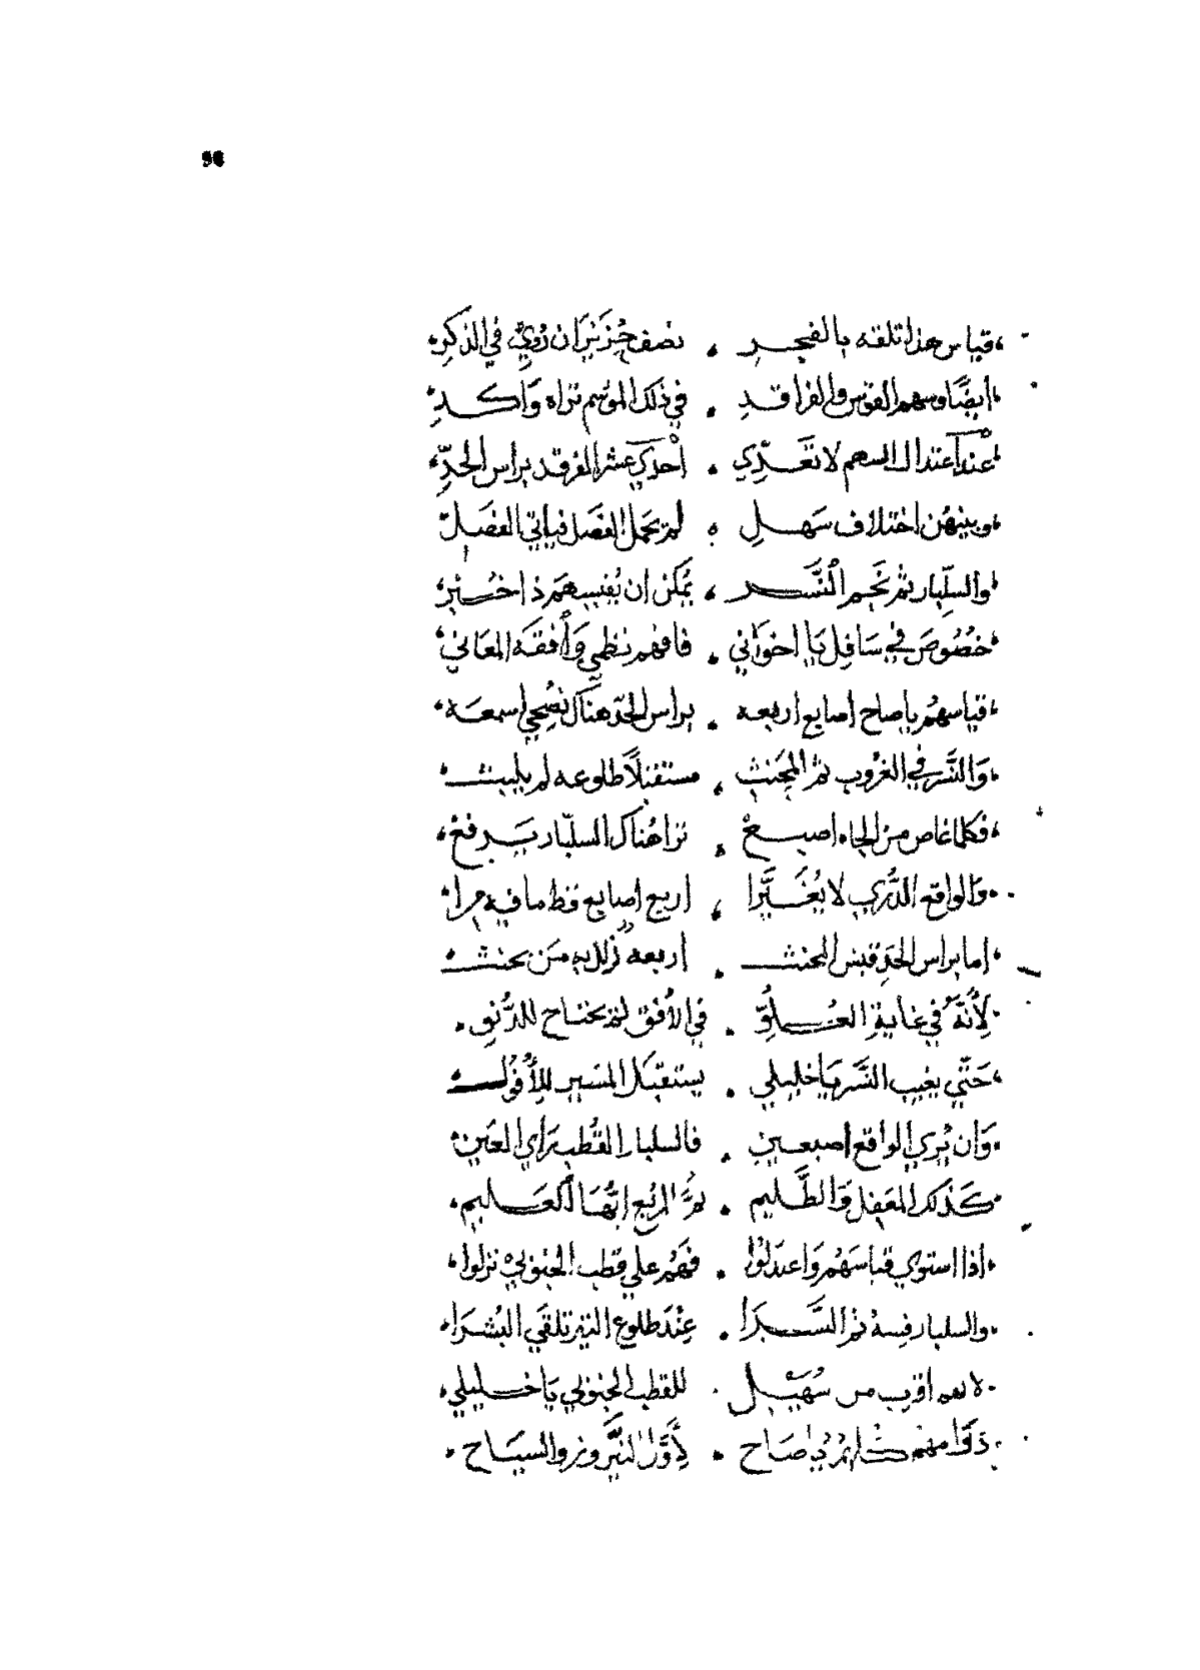 96
قياس هذا تلقه بالفجر . نصف حزيران رُوي في الذكر
أيضًا وسهم القوس والفراقد . في ذلك الموسم تراه وَاكد
عند اعتدال السهم لا تَعَدِّي . احدى عشر الفرقد براس الجدِّ
وبينهُن اختلاف سَهل . لم يحمل الفضل فيأتي الفضل
والسلِّبار ثم نَجم النَّسر ، يُمكن ان يُقيسهم ذا خُبْر
خُصُوصَ في سَافِل يَا اخوَاني . فافهم نظمي وَأفقَه المعَاني
قياسهُم ياصاح اصابع اربعه . براس الجدّ هناك نُصحي اسمعَه
وَالنَّسر في الغرُوب ثم المحنث ، مستقبلاً طلوعه لم يلبث
فكلما غاص من الجاه اصبع ، تراهُناك السلبّار يَرفع
وَالواقع الدُّري لا يُغَيَّرا ، اربع اصابع قط ما فيه مرا
اما براس الجدِ قيس المحنث . اربعه زل به مَن يحنث
لأَنَّه في غايةِ العُلوِّ . في الأُفق لم يحتاج للدُّنو
حَتّي يغيب النَّسر يَا خليلي . يستقبل المسير للأُفول
وَان يُري الواقع اصبعين . فالسلبار القُطب رَأي العَين
كَذلك المَعقِل وَالظَّليم . ثمَّ المربّع ايُّهَا العَليم
اذا استوي قياسَهُم وَاعتدلوُا . فهُم علي قطب الجنوبي نزلوا
والسلبار قِسهُ ثم السَّبرا . عِنْد طلوع النير تلقَي البُشرَا
لانه اقرب من سُهَيْل . للقطب الجنوبي يَا خليلي
ياصَاح . لأوَّل النَّيروز والسيَاح